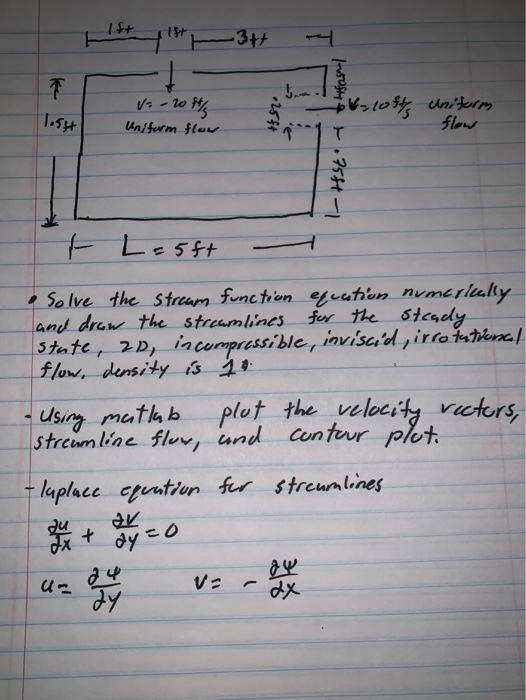 1ft 1ft 3ft
.50ft
V= -20 ft/s
uniform flow
.25ft
V=10 ft/s uniform
flow
1.5ft
.75ft
L = 5ft
• Solve the stream function equation numerically
and draw the streamlines for the steady
state, 2D, incompressible, inviscid, irrotational
flow. density is 1.
- Using matlab plot the velocity vectors,
streamline flow, and contour plot.
- laplace equation for streamlines
∂u/∂x + ∂v/∂y = 0
u = ∂ψ/∂y v = - ∂ψ/∂x